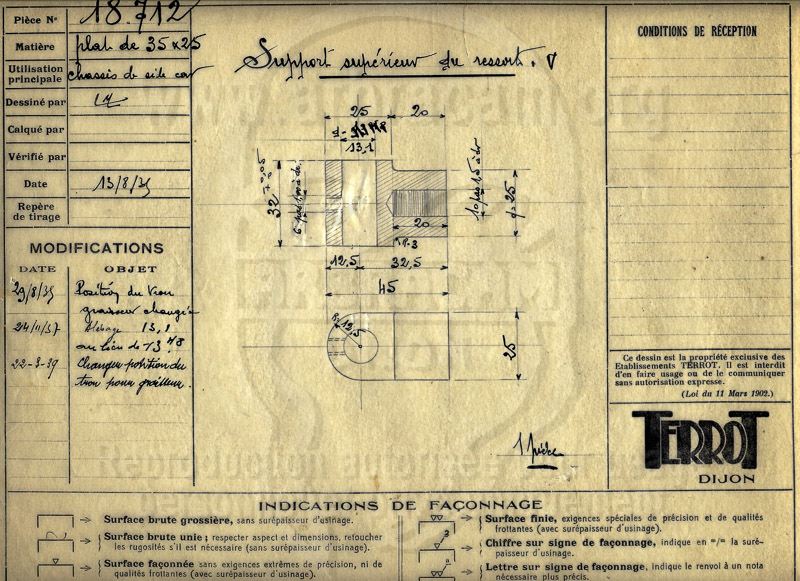 Pièce N° 18.712
Matière plat de 35 x 25
Utilisation principale chassis de side car
Dessiné par
Calqué par
Vérifié par
Date 13/8/35
Repère de tirage
MODIFICATIONS
DATE OBJET
29/8/35 Position du trou
graisseur changée
24/11/37 Alésage 13,1
au lieu de 13
22-3-39 Changer position du
trou pour graisseur.
Support supérieur du ressort. V
25 20
13,1
32
ø=25
20
R=3
12,5 32,5
45
R=12,5
25
1 pièce
CONDITIONS DE RÉCEPTION
Ce dessin est la propriété exclusive des
Etablissements TERROT. Il est interdit
d'en faire usage ou de le communiquer
sans autorisation expresse.
(Loi du 11 Mars 1902.)
TERROT
DIJON
INDICATIONS DE FAÇONNAGE
Surface brute grossière, sans surépaisseur d'usinage.
Surface brute unie ; respecter aspect et dimensions, retoucher
les rugosités s'il est nécessaire (sans surépaisseur d'usinage).
Surface façonnée sans exigences extrêmes de précision, ni de
qualités frottantes (avec surépaisseur d'usinage).
Surface finie, exigences spéciales de précision et de qualités
frottantes (avec surépaisseur d'usinage).
3
Chiffre sur signe de façonnage, indique en °/= la surépaisseur d'usinage.
a
Lettre sur signe de façonnage, indique le renvoi à un nota
nécessaire plus précis.